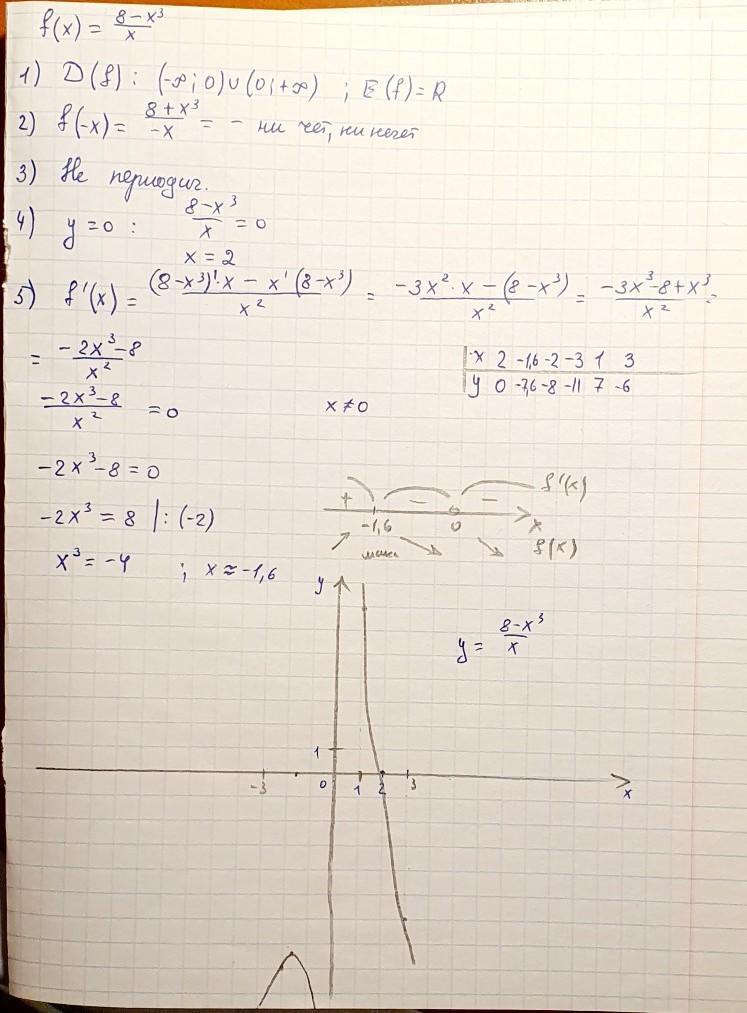 f(x) = (8−x³)/x
1) D(f): (-∞; 0)∪(0; +∞) ; E(f)=R
2) f(-x) = (8+x³)/(-x) = - ни чет, ни нечет
3) Не периодич.
4) y=0 : (8−x³)/x = 0
x = 2
5) f'(x) = ((8−x³)'·x − x'(8−x³))/x² = (−3x²·x − (8−x³))/x² = (−3x³−8+x³)/x² =
= (−2x³−8)/x²
x 2 -1,6 -2 -3 1 3
y 0 -7,6 -8 -11 7 -6
(−2x³−8)/x² = 0 x≠0
−2x³−8=0
+ − − f'(x)
−2x³ = 8 |: (-2)
-1,6 0 x
макс f(x)
x³ = −4 ; x ≈ −1,6
y
y = (8−x³)/x
1
-3 0 1 2 3 x